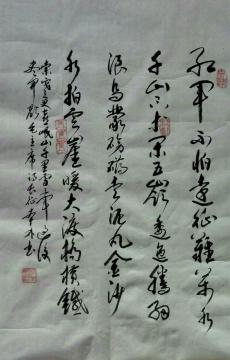 紅軍不怕遠征難萬水
千山只等閑五嶺逶迤騰細
浪烏蒙磅礴走泥丸金沙
水拍雲崖暖大渡橋橫鐵
索寒更喜岷山千里雪三軍過後
盡開顏毛主席詩長征